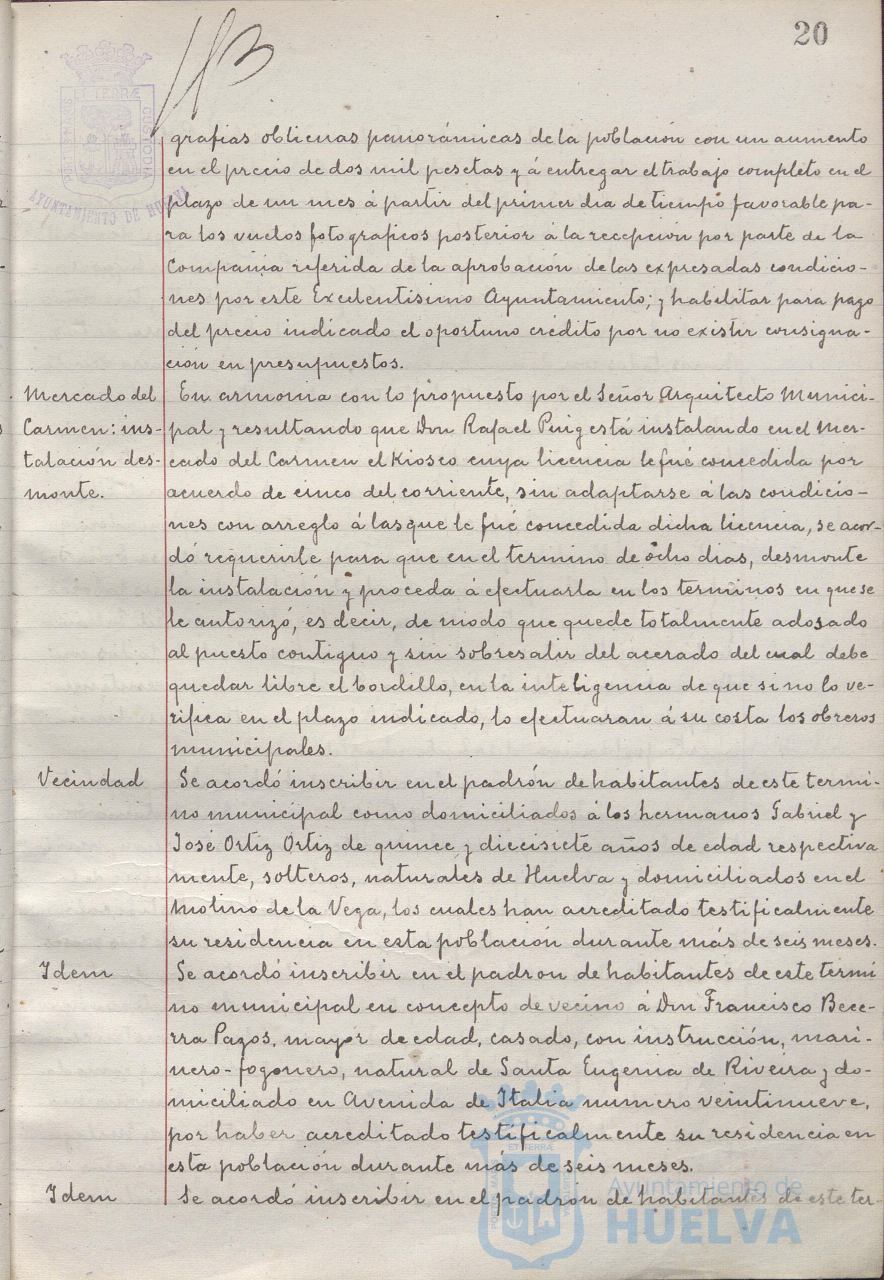 20
grafias oblicuas panorámicas de la población con un aumento
en el precio de dos mil pesetas y á entregar el trabajo completo en el
plazo de un mes á partir del primer dia de tiempo favorable pa-
ra los vuelos fotograficos posterior á la recepción por parte de la
Compañia referida de la aprobación de las expresadas condicio-
nes por este Excelentisimo Ayuntamiento; y habilitar para pago
del precio indicado el oportuno crédito por no existir consigna-
ción en presupuestos.
Mercado del
Carmen: ins-
talación des-
monte.
En armonia con lo propuesto por el Señor Arquitecto Munici-
pal y resultando que Don Rafael Puig está instalando en el Mer-
cado del Carmen el Kiosco cuya licencia le fué concedida por
acuerdo de cinco del corriente, sin adaptarse á las condicio-
nes con arreglo á las que le fué concedida dicha licencia, se acor-
dó requerirle para que en el termino de ocho dias, desmonte
la instalación y proceda á efectuarla en los terminos en que se
le autorizó, es decir, de modo que quede totalmente adosado
al puesto contiguo y sin sobresalir del acerado del cual debe
quedar libre el bordillo, en la inteligencia de que si no lo ve-
rifica en el plazo indicado, lo efectuaran á su costa los obreros
municipales.
Vecindad
Se acordó inscribir en el padrón de habitantes de este termi-
no municipal como domiciliados á los hermanos Gabriel y
José Ortiz Ortiz de quince y diecisiete años de edad respectiva
mente, solteros, naturales de Huelva y domiciliados en el
Molino de la Vega, los cuales han acreditado testificalmente
su residencia en esta población durante más de seis meses.
Idem
Se acordó inscribir en el padron de habitantes de este termi
no municipal en concepto de vecino á Don Francisco Bece-
rra Pazos, mayor de edad, casado, con instrucción, mari-
nero-fogonero, natural de Santa Eugenia de Riveira y do-
miciliado en Avenida de Italia numero veintinueve,
por haber acreditado testificalmente su residencia en
esta población durante más de seis meses.
Idem
Se acordó inscribir en el padrón de habitantes de este ter-
AYUNTAMIENTO DE HUELVA
Ayuntamiento de
HUELVA